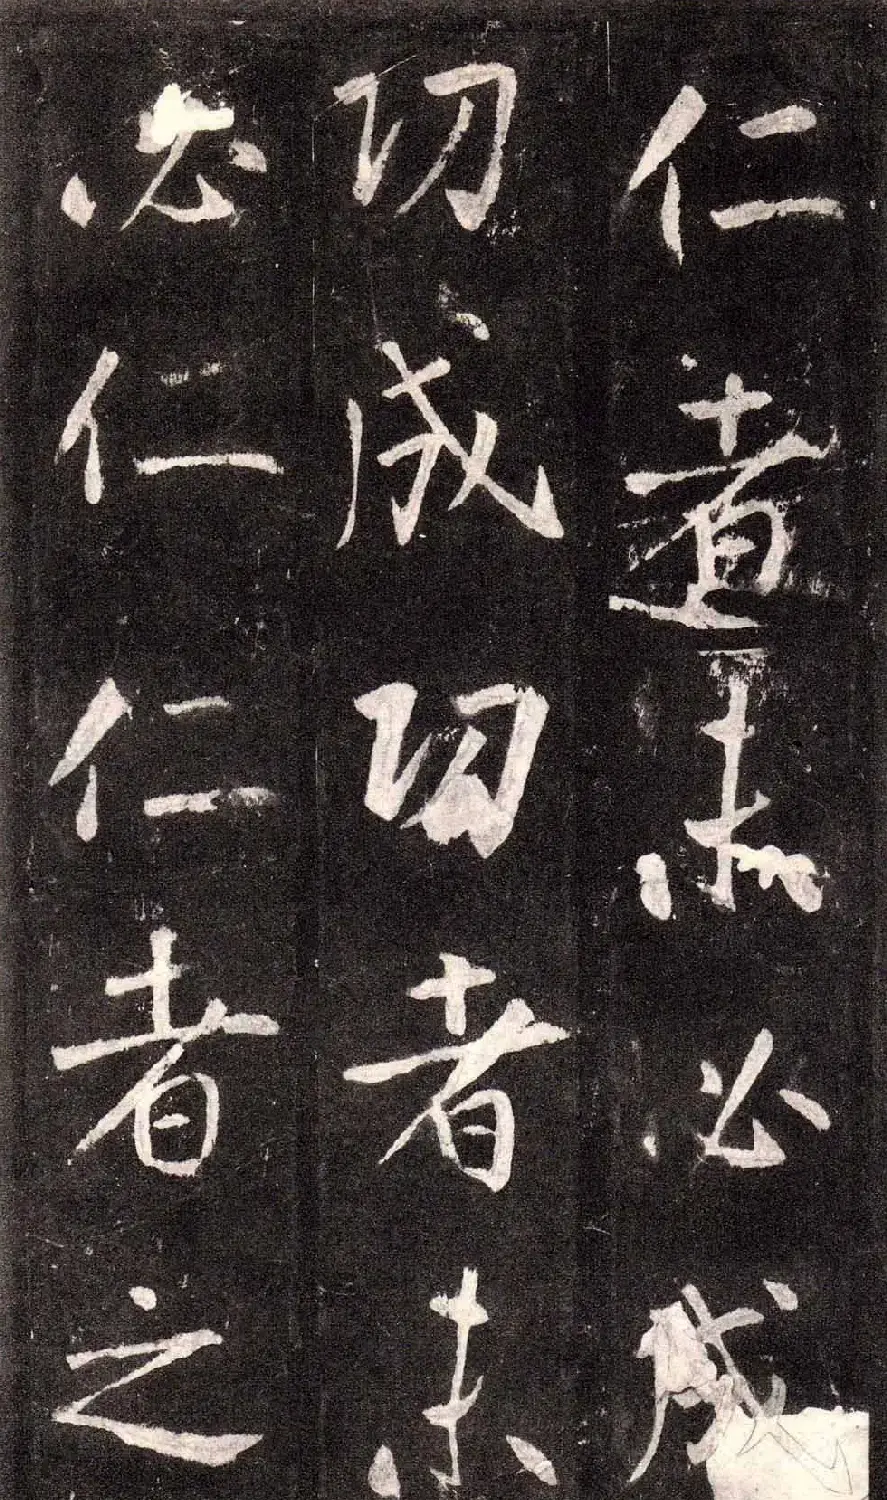 仁者未必成
功成功者未
必仁仁者之